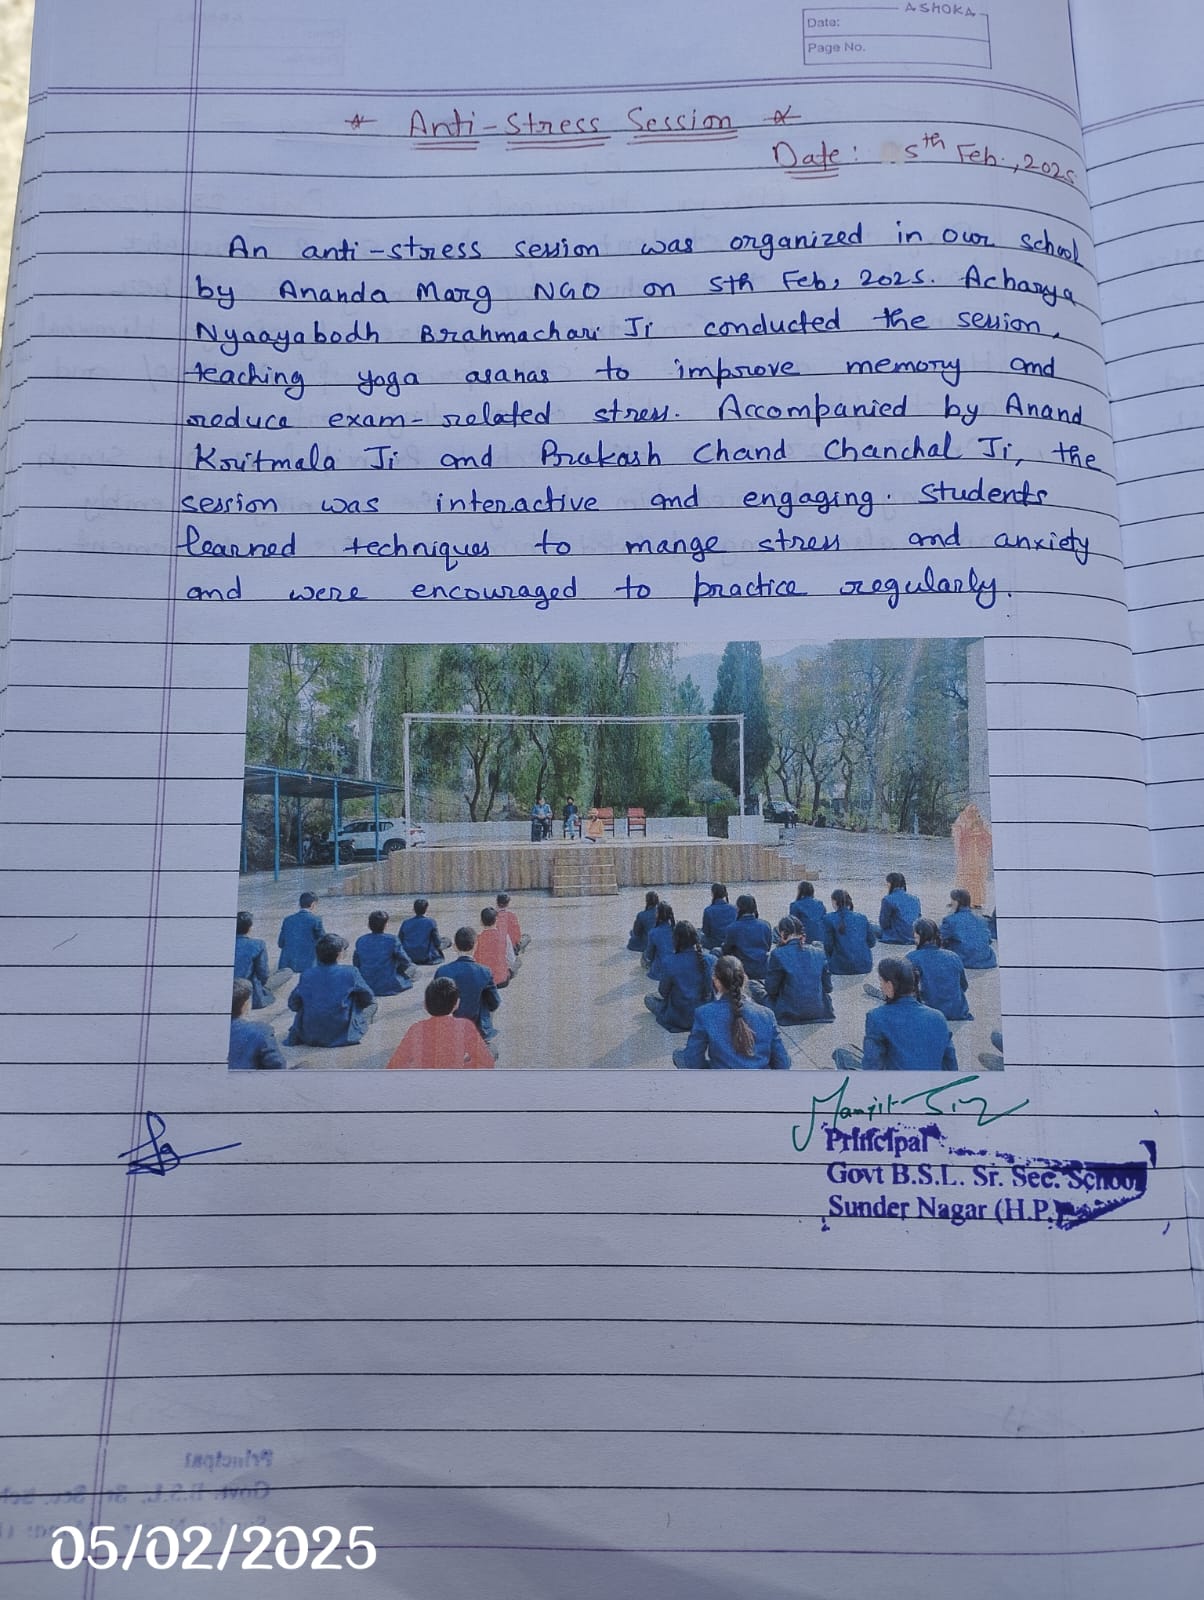 ASHOKA
Date:
Page No.
* Anti-Stress Session *
Date: 5th Feb., 2025
An anti-stress session was organized in our school
by Ananda Marg NGO on 5th Feb, 2025. Acharya
Nyaayabodh Brahmachari Ji conducted the session,
teaching yoga asanas to improve memory and
reduce exam-related stress. Accompanied by Anand
Kritmala Ji and Prakash Chand Chanchal Ji, the
session was interactive and engaging. Students
learned techniques to mange stress and anxiety
and were encouraged to practice regularly.
Manjit
Principal
Govt B.S.L. Sr. Sec. School
Sunder Nagar (H.P.)
05/02/2025